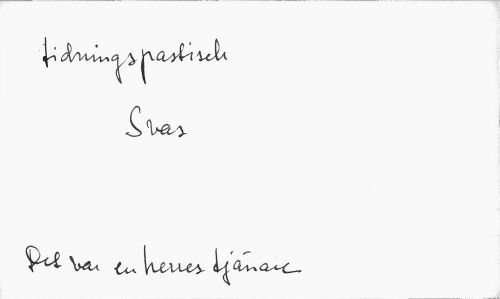 tidningspastisch
Svas
Det var en herres tjänare